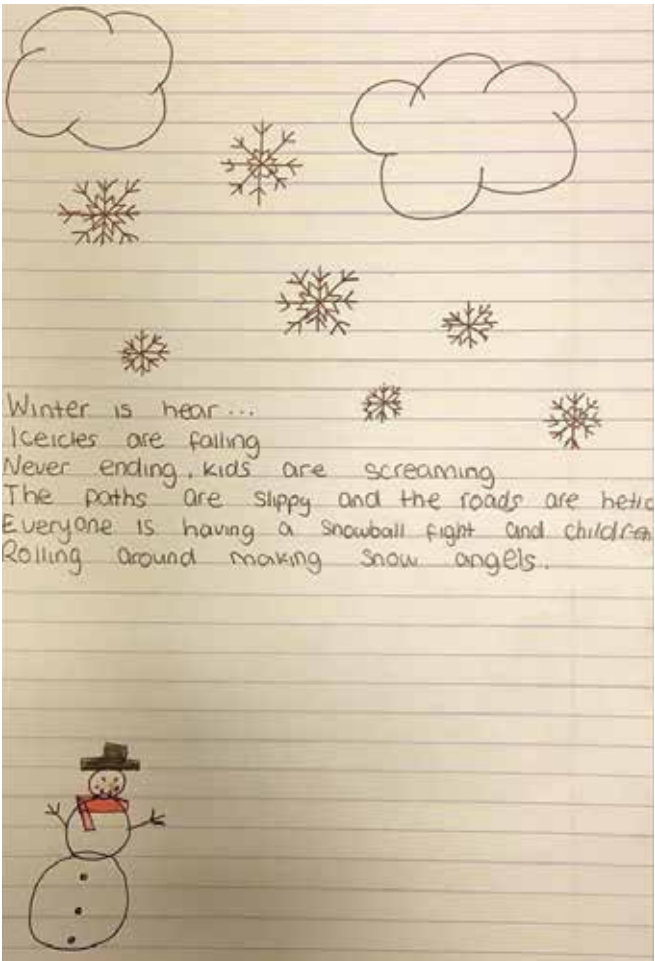 Winter is hear...
Iceicles are falling
Never ending, kids are screaming
The paths are slippy and the roads are hetic
Everyone is having a snowball fight and children
Rolling around making snow angels.